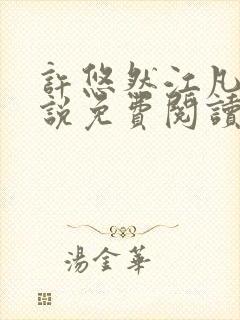 許悠然江凡
說免費閱讀
湯金華